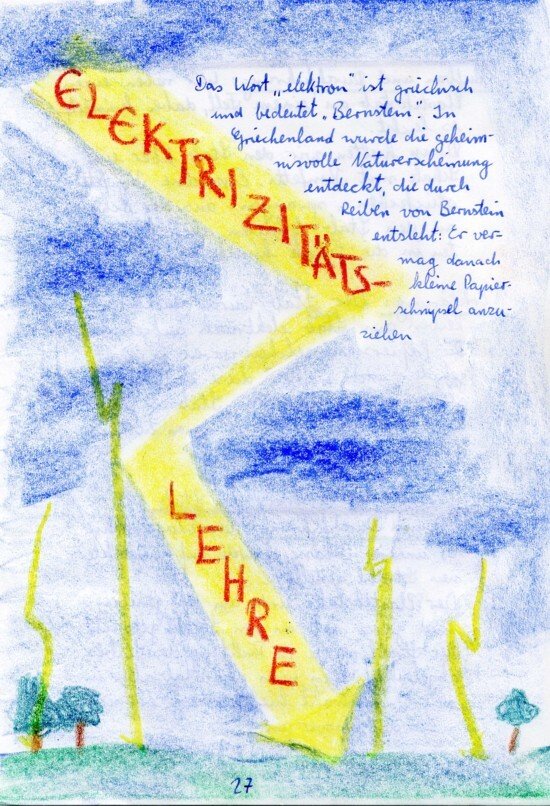 ELEKTRIZITÄTS-
LEHRE
Das Wort „elektron" ist griechisch
und bedeutet „Bernstein". In
Griechenland wurde die geheim-
nisvolle Naturerscheinung
entdeckt, die durch
Reiben von Bernstein
entsteht: Er ver-
mag danach
kleine Papier-
schnipsel anzu-
ziehen
27